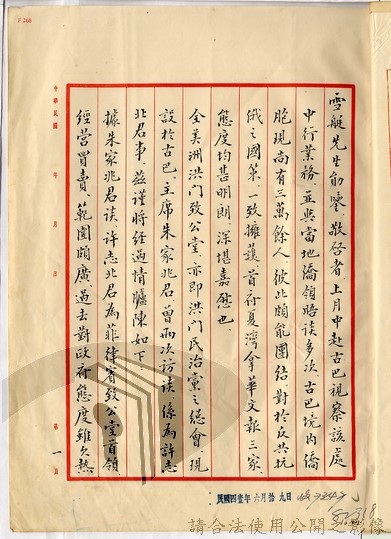 雪艇先生勛鑒敬啓者上月中赴古巴視察該處
中行業務並與當地僑領晤談多次古巴境內僑
胞現尚有三萬餘人彼此頗能團結對於反共抗
俄之國策一致擁護首府夏灣拿華文報三家
態度均甚明朗深堪嘉慰也
全美洲洪門致公堂亦即洪門民治黨之總會現
設於古巴主席朱家兆君曾兩次訪談係為許志
北君事茲謹將經過情形臚陳如下
據朱家兆君談許志北君為菲律賓致公堂首領
經營買賣範圍頗廣過去對政府態度雖欠熱
中華民國 年 月 日
第一頁
民國四壹年六月拾九日
請合法使用公開之影像